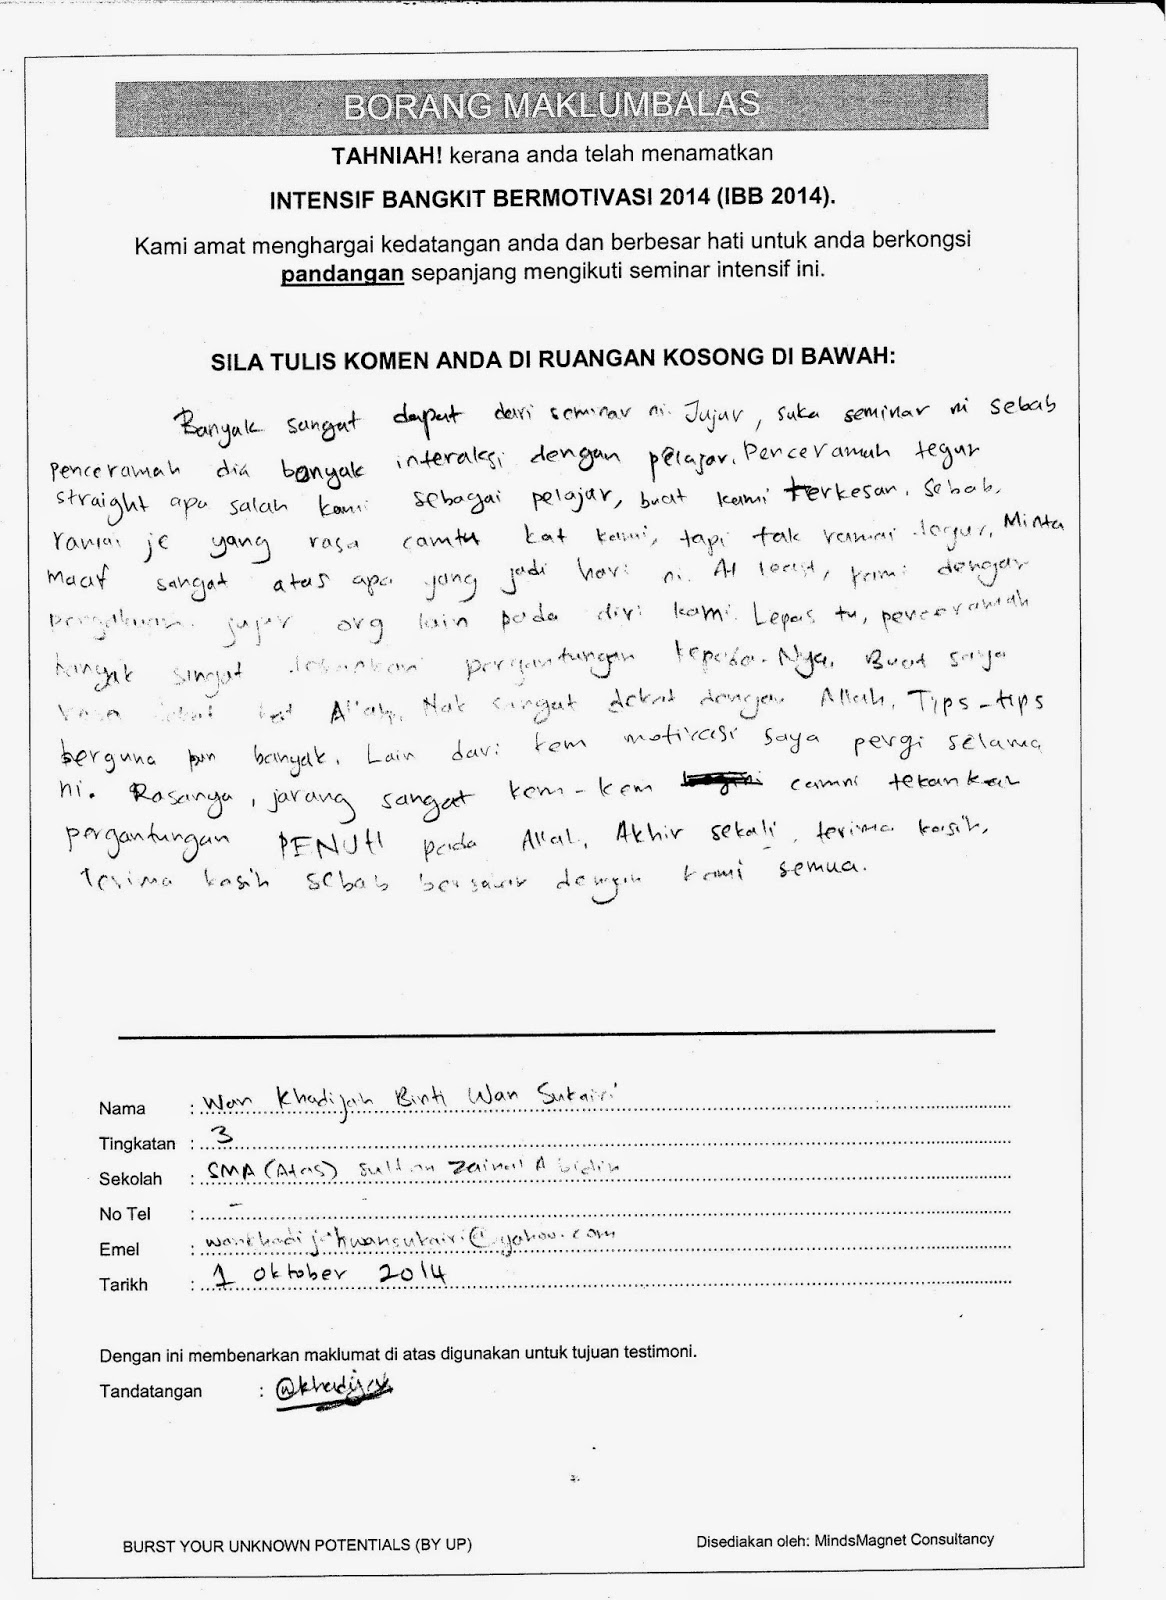 BORANG MAKLUMBALAS
TAHNIAH! kerana anda telah menamatkan
INTENSIF BANGKIT BERMOTIVASI 2014 (IBB 2014).
Kami amat menghargai kedatangan anda dan berbesar hati untuk anda berkongsi
pandangan sepanjang mengikuti seminar intensif ini.
SILA TULIS KOMEN ANDA DI RUANGAN KOSONG DI BAWAH:
Banyak sangat dapat dari seminar ni. Jujur, suka seminar ni sebab
penceramah dia banyak interaksi dengan pelajar. Penceramah tegur
straight apa salah kami sebagai pelajar, buat kami terkesan. Sebab,
ramai je yang rasa camtu kat kami, tapi tak ramai tegur. Minta
maaf sangat atas apa yang jadi hari ni. At least, kami dengar
pengakuan jujur org lain pada diri kami. Lepas tu, penceramah
banyak sangat tekankan pergantungan kepada-Nya. Buat saya
rasa dekat kat Allah. Nak sangat dekat dengan Allah. Tips-tips
berguna pun banyak. Lain dari kem motivasi saya pergi selama
ni. Rasanya, jarang sangat kem-kem camni tekankan
pergantungan PENUH pada Allah. Akhir sekali, terima kasih.
Terima kasih sebab bersabar dengan kami semua.
Nama : Wan Khadijah Binti Wan Sukairi
Tingkatan : 3
Sekolah : SMA (Atas) Sultan Zainal Abidin
No Tel : -
Emel : wankhadijahwansukairi@yahoo.com
Tarikh : 1 Oktober 2014
Dengan ini membenarkan maklumat di atas digunakan untuk tujuan testimoni.
Tandatangan : @khadijah
BURST YOUR UNKNOWN POTENTIALS (BY UP)
Disediakan oleh: MindsMagnet Consultancy